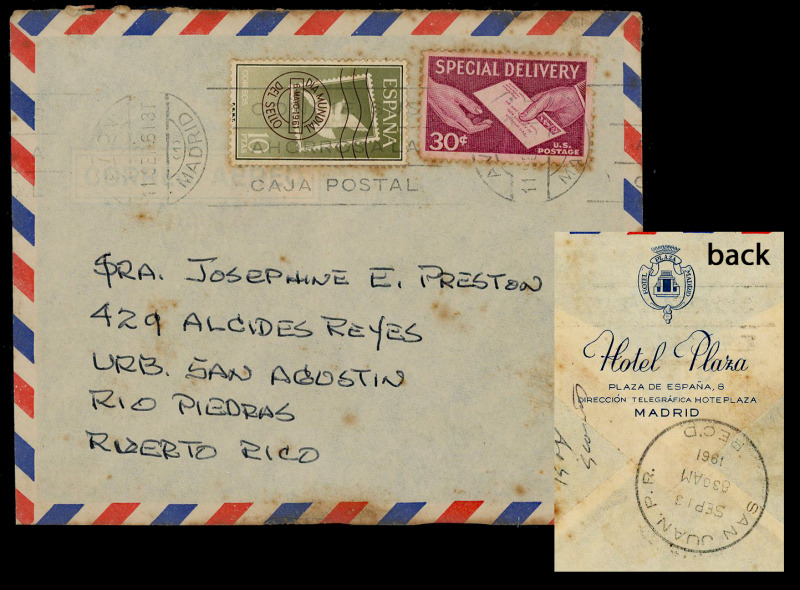 CORREOS
DIA MUNDIAL
DEL SELLO
6 MAYO-1961
10 PTAS
ESPAÑA
SPECIAL DELIVERY
30¢
U.S.
POSTAGE
MADRID
CAJA POSTAL
SRA. JOSEPHINE E. PRESTON
429 ALCIDES REYES
URB. SAN AGUSTIN
RIO PIEDRAS
PUERTO RICO
back
HOTEL PLAZA MADRID
Hotel Plaza
PLAZA DE ESPAÑA, 8
DIRECCIÓN TELEGRÁFICA HOTEPLAZA
MADRID
SAN JUAN, P.R.
SEP 13
830AM
1961
REC'D